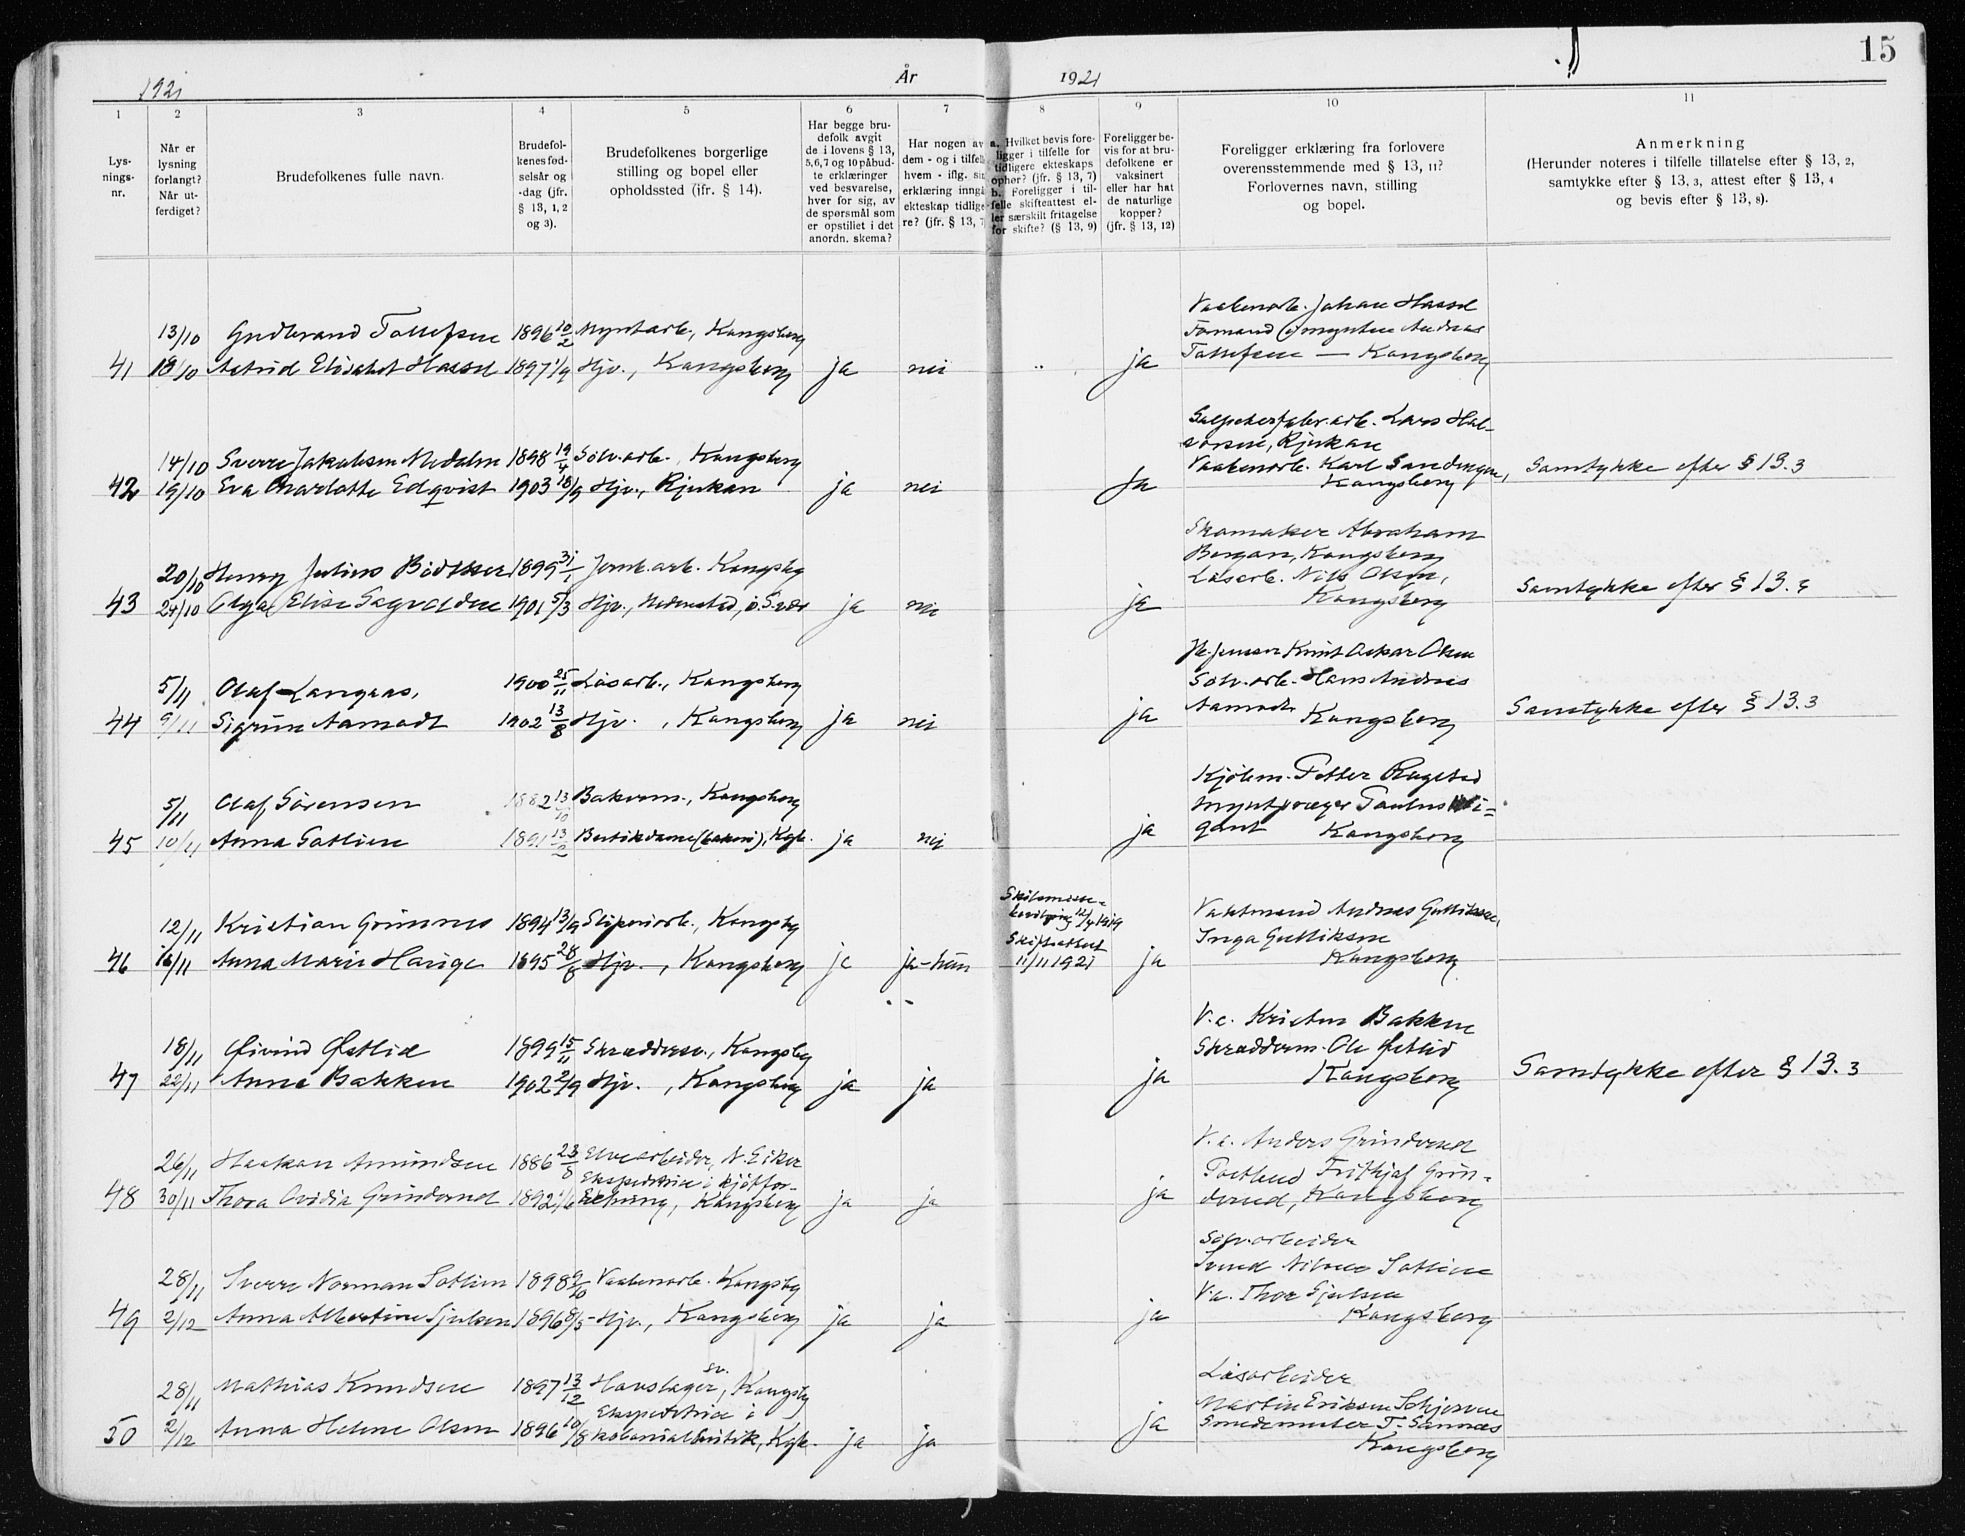 15
1921
År
1921
1
2
3
4
5
6
7
8
9
10
11
Lys-
nings-
nr.
Når er
lysning
forlangt?
Når ut-
ferdiget?
Brudefolkenes fulle navn.
Brudefol-
kenes fød-
selsår og
-dag (jfr.
§ 13, 1, 2
og 3).
Brudefolkenes borgerlige
stilling og bopel eller
opholdssted (jfr. § 14).
Har begge bru-
defolk avgit
de i lovens § 13,
5,6,7 og 10 påbud-
te erklæringer
ved besvarelse,
hver for sig, av
de spørsmål som
er opstillet i det
anordn. skema?
Har nogen av
dem - og i tilfelle
hvem - iflg. sin
erklæring inngå
ekteskap tidlige-
re? (jfr. § 13, 7
a. Hvilket bevis fore-
ligger i tilfelle for
tidligere ekteskaps
ophør? (jfr. § 13, 7)
b. Foreligger i til-
felle skifteattest el-
ler særskilt fritagelse
for skifte? (§ 13, 9)
Foreligger be-
vis for at bru-
defolkene er
vaksinert
eller har hat
de naturlige
kopper?
(jfr. § 13, 12)
Foreligger erklæring fra forlovere
overensstemmende med § 13, 11?
Forlovernes navn, stilling
og bopel.
Anmerkning
(Herunder noteres i tilfelle tillatelse efter § 13, 2,
samtykke efter § 13, 3, attest efter § 13, 4
og bevis efter § 13, 8).
13/10 Gudbrand Tollefsen 1896 10/2 Myntarb., Kongsberg
41 18/10 Astrid Elisabet Hassel 1897 1/9 Hjv., Kongsberg ja nei " ja
Vaabenarb. Johan Hassel
Formand v/mynten Andreas
Tollefsen — Kongsberg
14/10 Sverre Jakobsen Medalen 1898 19/4 Sølv.arb., Kongsberg
42 19/10 Eva Charlotte Edqvist 1903 18/9 Hjv., Rjukan ja nei Ja
Salpeterfabr.arb. Lars Hal-
vorsen, Rjukan
Vaabenarb. Karl Sandengen,
Kongsberg
Samtykke efter § 13.3
20/10 Henry Julius Bødtker 1899 31/1 Jernb.arb. Kongsbg
43 24/10 Olga Elise Sagvolden 1901 5/3 Hjv., Hedenstad, ja nei ja
Skomaker Abraham
Bergan, Kongsberg
Løsarb. Nils Olsen,
Kongsberg
Samtykke efter § 13.3
5/11 Olaf Langaas, 1900 25/11 Løsarb., Kongsberg
44 9/11 Sigrun Aamodt 1902 13/8 Hjv., Kongsberg ja nei ja
Knut Oskar Olsen
Sølv.arb. Hans Andreas
Aamodt
Kongsberg
Samtykke efter § 13.3
5/11 Olaf Sørensen 1882 13/10 Bakerm., Kongsberg
45 10/11 Anna Sotlien 1891 13/2 Butikdame (bakeri), Kgb. ja nei ja
Kjølem. Petter Ragstad
Myntpræger Paulus Wi-
gant Kongsberg
12/11 Kristian Grimnes 1894 13/9 Sliperiarb., Kongsbg
46 16/11 Anna Marie Hauge 1895 28/8 Hjv., Kongsberg ja ja-hun
Skilsmisse-
bevilling 12/4 1919
Skifteattest
11/11 1921
ja
Vaktmand Andreas Gulliksen,
Inga Gulliksen
Kongsberg
18/11 Øivind Østlid 1899 15/11 Skræddersv., Kongsbg
47 22/11 Anne Bakken 1902 2/9 Hjv., Kongsberg ja ja ja
V.a. Kristen Bakken
Skrædderm. Ole Østlid
Kongsberg
Samtykke efter § 13.3
26/11 Haakon Amundsen 1886 23/8 Elvearbeider, N. Eiker
48 30/11 Thora Ovidia Grinderud 1892 1/6 Ekspeditrice i kjøtfor-
retning, Kongsberg ja ja ja
V.a. Anders Grinderud
Postbud Frithjof Grin-
derud, Kongsberg
28/11 Sverre Norman Sotlien 1898 9/10 Vaabenarb. Kongsbg
49 2/12 Anna Albertine Gjulsen 1896 8/5 Hjv., Kongsberg ja ja ja
Sølv.arbeider
Svend Nilsen Sotlien
V.a. Thor Gjulsen
Kongsberg
28/11 Mathias Knudsen 1897 13/12 Hovslager sv., Kongsbg
50 2/12 Anna Helene Olsen 1896 10/8 Ekspeditrice i
kolonialbutik, Kgb. ja ja ja
Løsarbeider
Martin Eriksen Schjerven
Smedemester T. Sannæs
Kongsberg